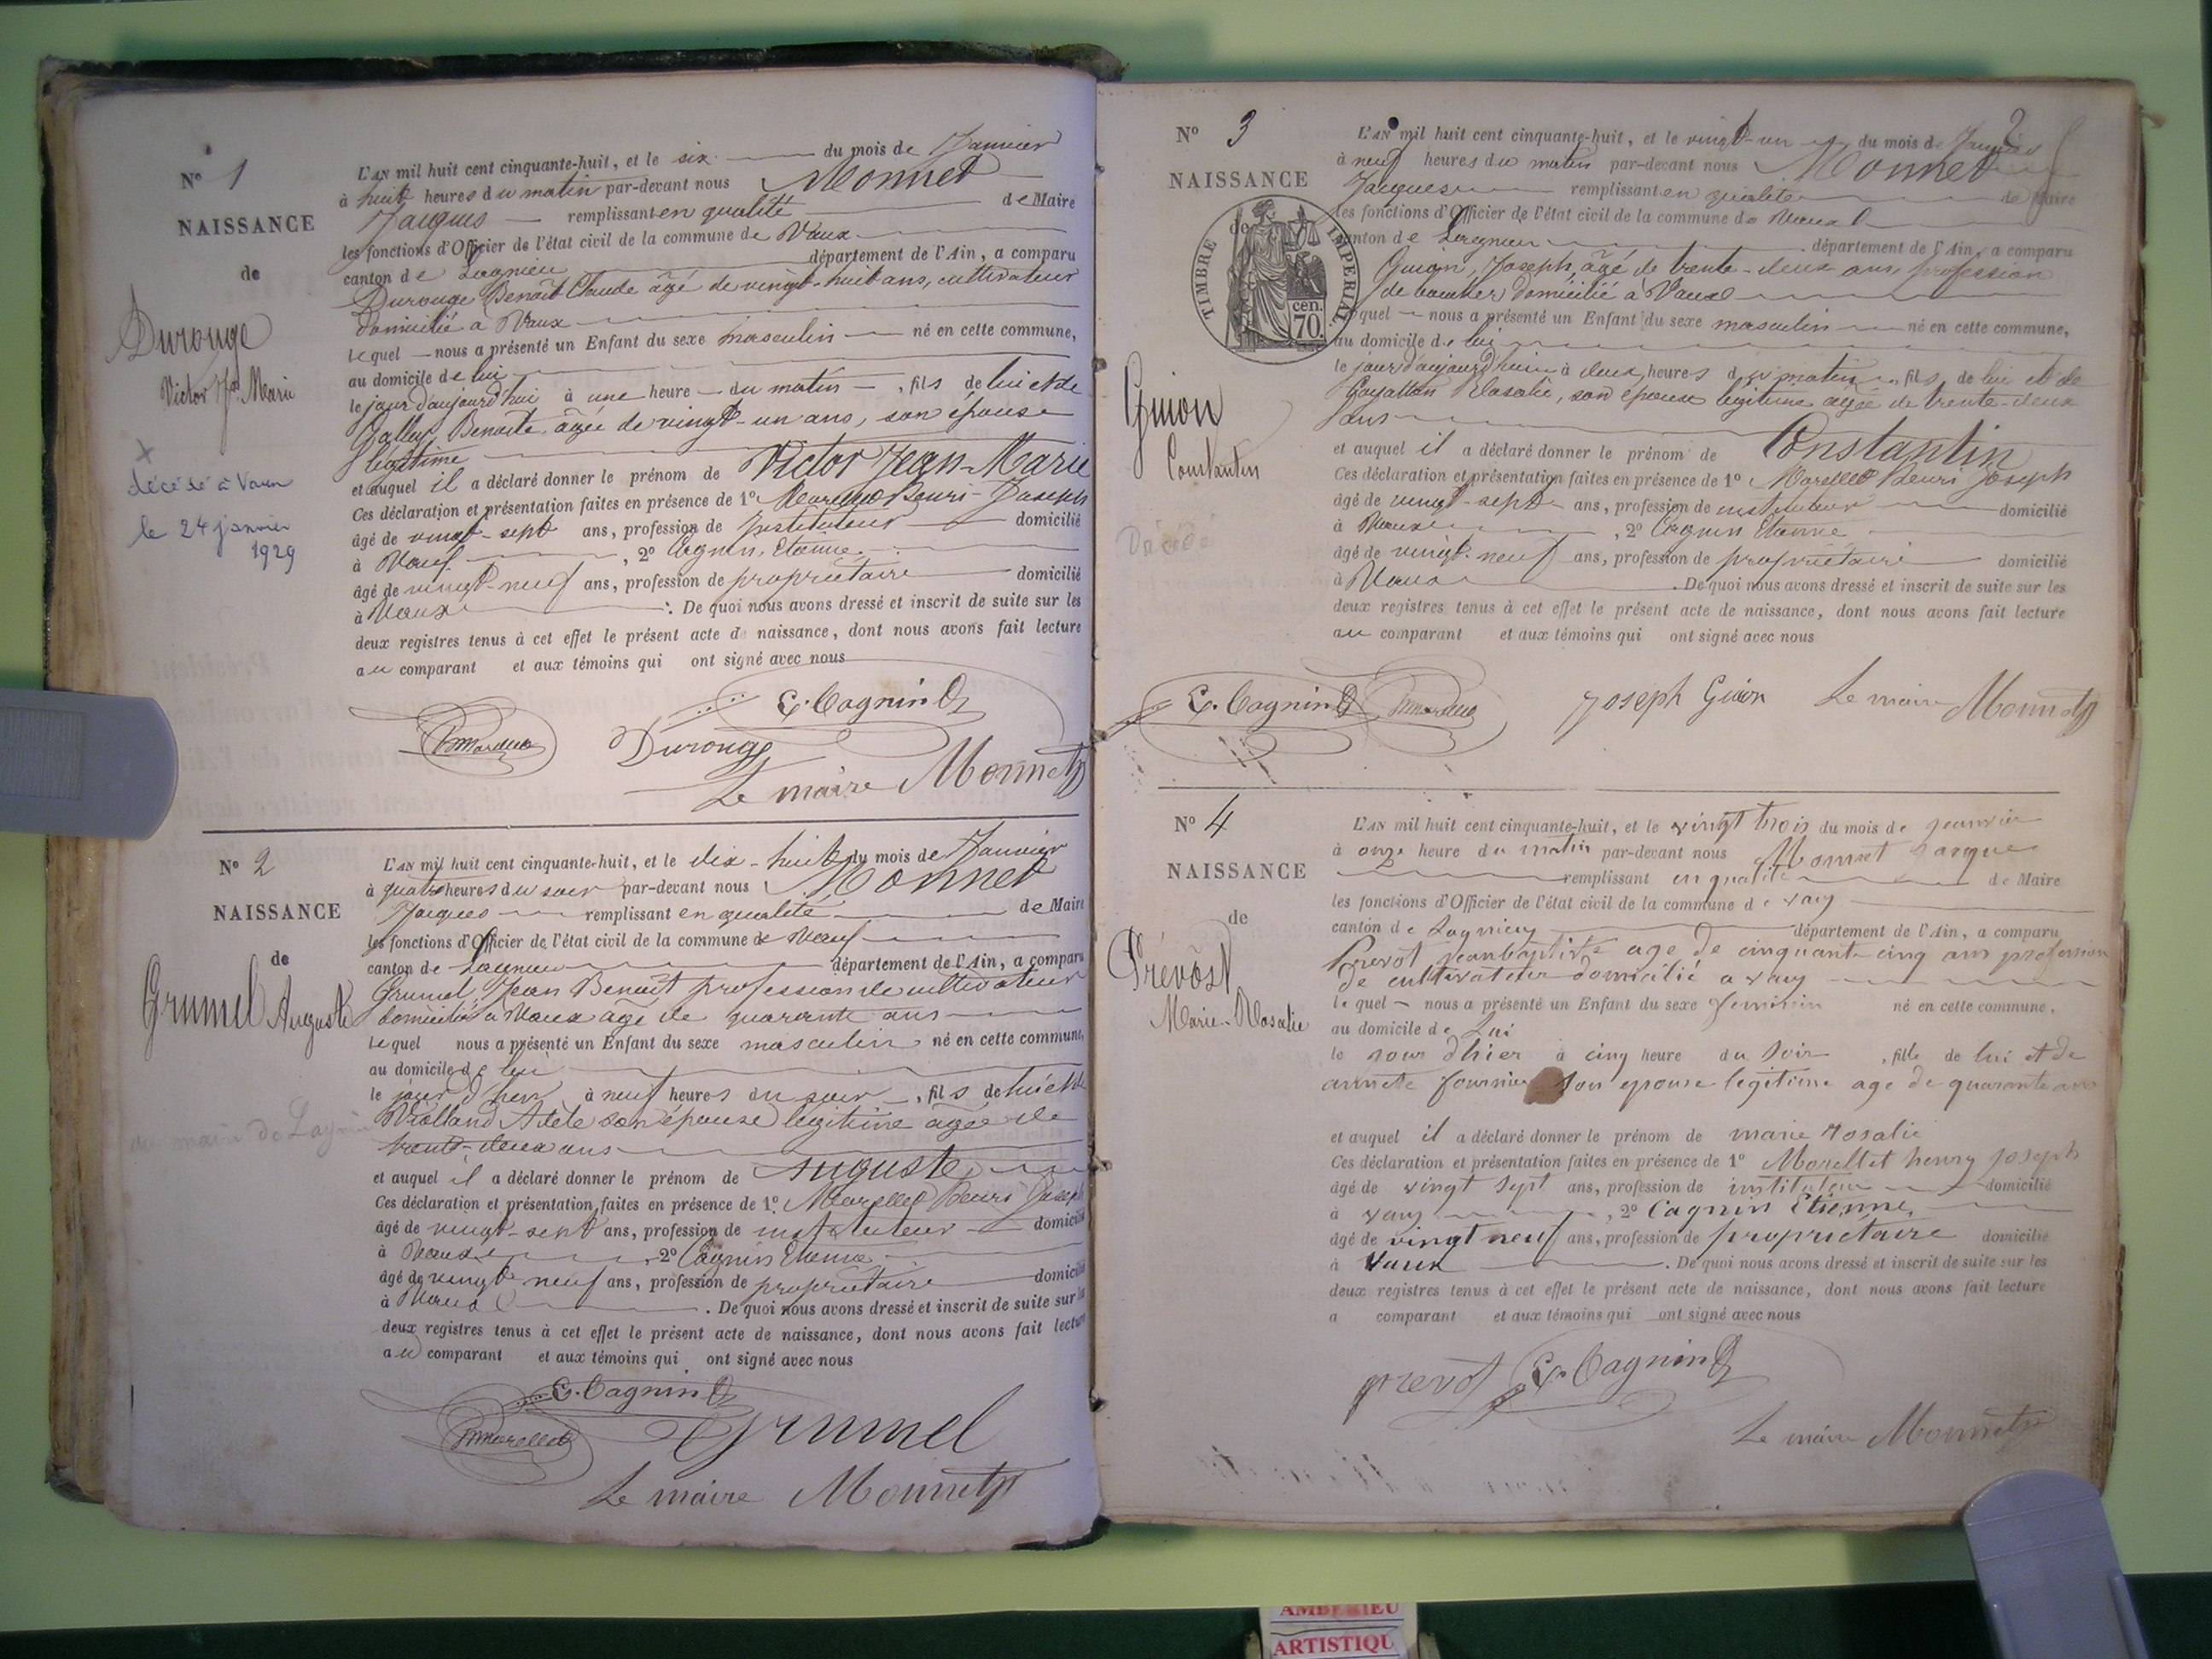 N° 1
NAISSANCE
de
Durouge
Victor Jn Marie
décédé à Vaux
le 24 janvier
1929
L'AN mil huit cent cinquante-huit, et le six du mois de Janvier
à huit heures du matin par-devant nous Monnet
Jacques remplissant en qualité de Maire
les fonctions d'Officier de l'état civil de la commune de Vaux
canton de Lagnieu département de l'Ain, a comparu
Durouge Benoît Claude âgé de vingt-huit ans, cultivateur
domicilié à Vaux
lequel nous a présenté un Enfant du sexe masculin né en cette commune,
au domicile de lui
le jour d'aujourd'hui à une heure du matin, fils de lui et de
Benoite âgée de vingt-un ans, son épouse
légitime
et auquel il a déclaré donner le prénom de Victor Jean-Marie
Ces déclaration et présentation faites en présence de 1° Morellet Henri-Joseph
âgé de vingt-sept ans, profession de instituteur domicilié
à Vaux, 2° Cagnin, Etienne
âgé de vingt-neuf ans, profession de propriétaire domicilié
à Vaux. De quoi nous avons dressé et inscrit de suite sur les
deux registres tenus à cet effet le présent acte de naissance, dont nous avons fait lecture
au comparant et aux témoins qui ont signé avec nous
E. Cagnin
Durouge
Le maire Monnet
N° 2
NAISSANCE
de
Grumel Auguste
L'AN mil huit cent cinquante-huit, et le dix-huit du mois de Janvier
à quatre heures du soir par-devant nous Monnet
Jacques remplissant en qualité de Maire
les fonctions d'Officier de l'état civil de la commune de Vaux
canton de Lagnieu département de l'Ain, a comparu
Grumel, Jean Benoît profession de cultivateur
domicilié à Vaux âgé de quarante ans
lequel nous a présenté un Enfant du sexe masculin né en cette commune,
au domicile de lui
le jour d'hier à neuf heures du soir, fils de lui et de
Violland Adèle son épouse légitime âgée de
trente-deux ans
et auquel il a déclaré donner le prénom de Auguste
Ces déclaration et présentation faites en présence de 1° Morellet Henri Joseph
âgé de vingt-sept ans, profession de instituteur domicilié
à Vaux, 2° Cagnin Etienne
âgé de vingt-neuf ans, profession de propriétaire domicilié
à Vaux. De quoi nous avons dressé et inscrit de suite sur les
deux registres tenus à cet effet le présent acte de naissance, dont nous avons fait lecture
au comparant et aux témoins qui ont signé avec nous
E. Cagnin
Morellet Grumel
Le maire Monnet
2
N° 3
NAISSANCE
de
TIMBRE IMPERIAL
70 cen.
Guion
Constantin
Décédé
L'AN mil huit cent cinquante-huit, et le vingt-un du mois de Janvier
à neuf heures du matin par-devant nous Monnet
Jacques remplissant en qualité de Maire
les fonctions d'Officier de l'état civil de la commune de Vaux
canton de Lagnieu département de l'Ain, a comparu
Guion, Joseph, âgé de trente-deux ans, profession
de domicilié à Vaux
lequel nous a présenté un Enfant du sexe masculin né en cette commune,
au domicile de lui
le jour d'aujourd'hui à deux heures du matin, fils de lui et de
Rosalie, son épouse légitime âgée de trente-deux
ans
et auquel il a déclaré donner le prénom de Constantin
Ces déclaration et présentation faites en présence de 1° Morellet Henri Joseph
âgé de vingt-sept ans, profession de instituteur domicilié
à Vaux, 2° Cagnin Etienne
âgé de vingt-neuf ans, profession de propriétaire domicilié
à Vaux. De quoi nous avons dressé et inscrit de suite sur les
deux registres tenus à cet effet le présent acte de naissance, dont nous avons fait lecture
au comparant et aux témoins qui ont signé avec nous
E. Cagnin Joseph Guion Le maire Monnet
N° 4
NAISSANCE
de
Prévôst
Marie-Rosalie
L'AN mil huit cent cinquante-huit, et le vingt trois du mois de janvier
à onze heure du matin par-devant nous Monnet Jacques
remplissant en qualité de Maire
les fonctions d'Officier de l'état civil de la commune de vaux
canton de Lagnieu département de l'Ain, a comparu
Prevot jeanbaptiste age de cinquante cinq ans profession
de cultivateur domicilié a vaux
lequel nous a présenté un Enfant du sexe feminin né en cette commune,
au domicile de Lui
le jour d'hier à cinq heure du soir, fille de lui et de
annete fournier son epouse legitime age de quarante ans
et auquel il a déclaré donner le prénom de marie rosalie
Ces déclaration et présentation faites en présence de 1° Morellet henry joseph
âgé de vingt sept ans, profession de instituteur domicilié
à vaux, 2° Cagnin Etienne,
âgé de vingt neuf ans, profession de propriétaire domicilié
à Vaux. De quoi nous avons dressé et inscrit de suite sur les
deux registres tenus à cet effet le présent acte de naissance, dont nous avons fait lecture
a comparant et aux témoins qui ont signé avec nous
prevot E. Cagnin
Le maire Monnet
AMBERIEU
ARTISTIQU